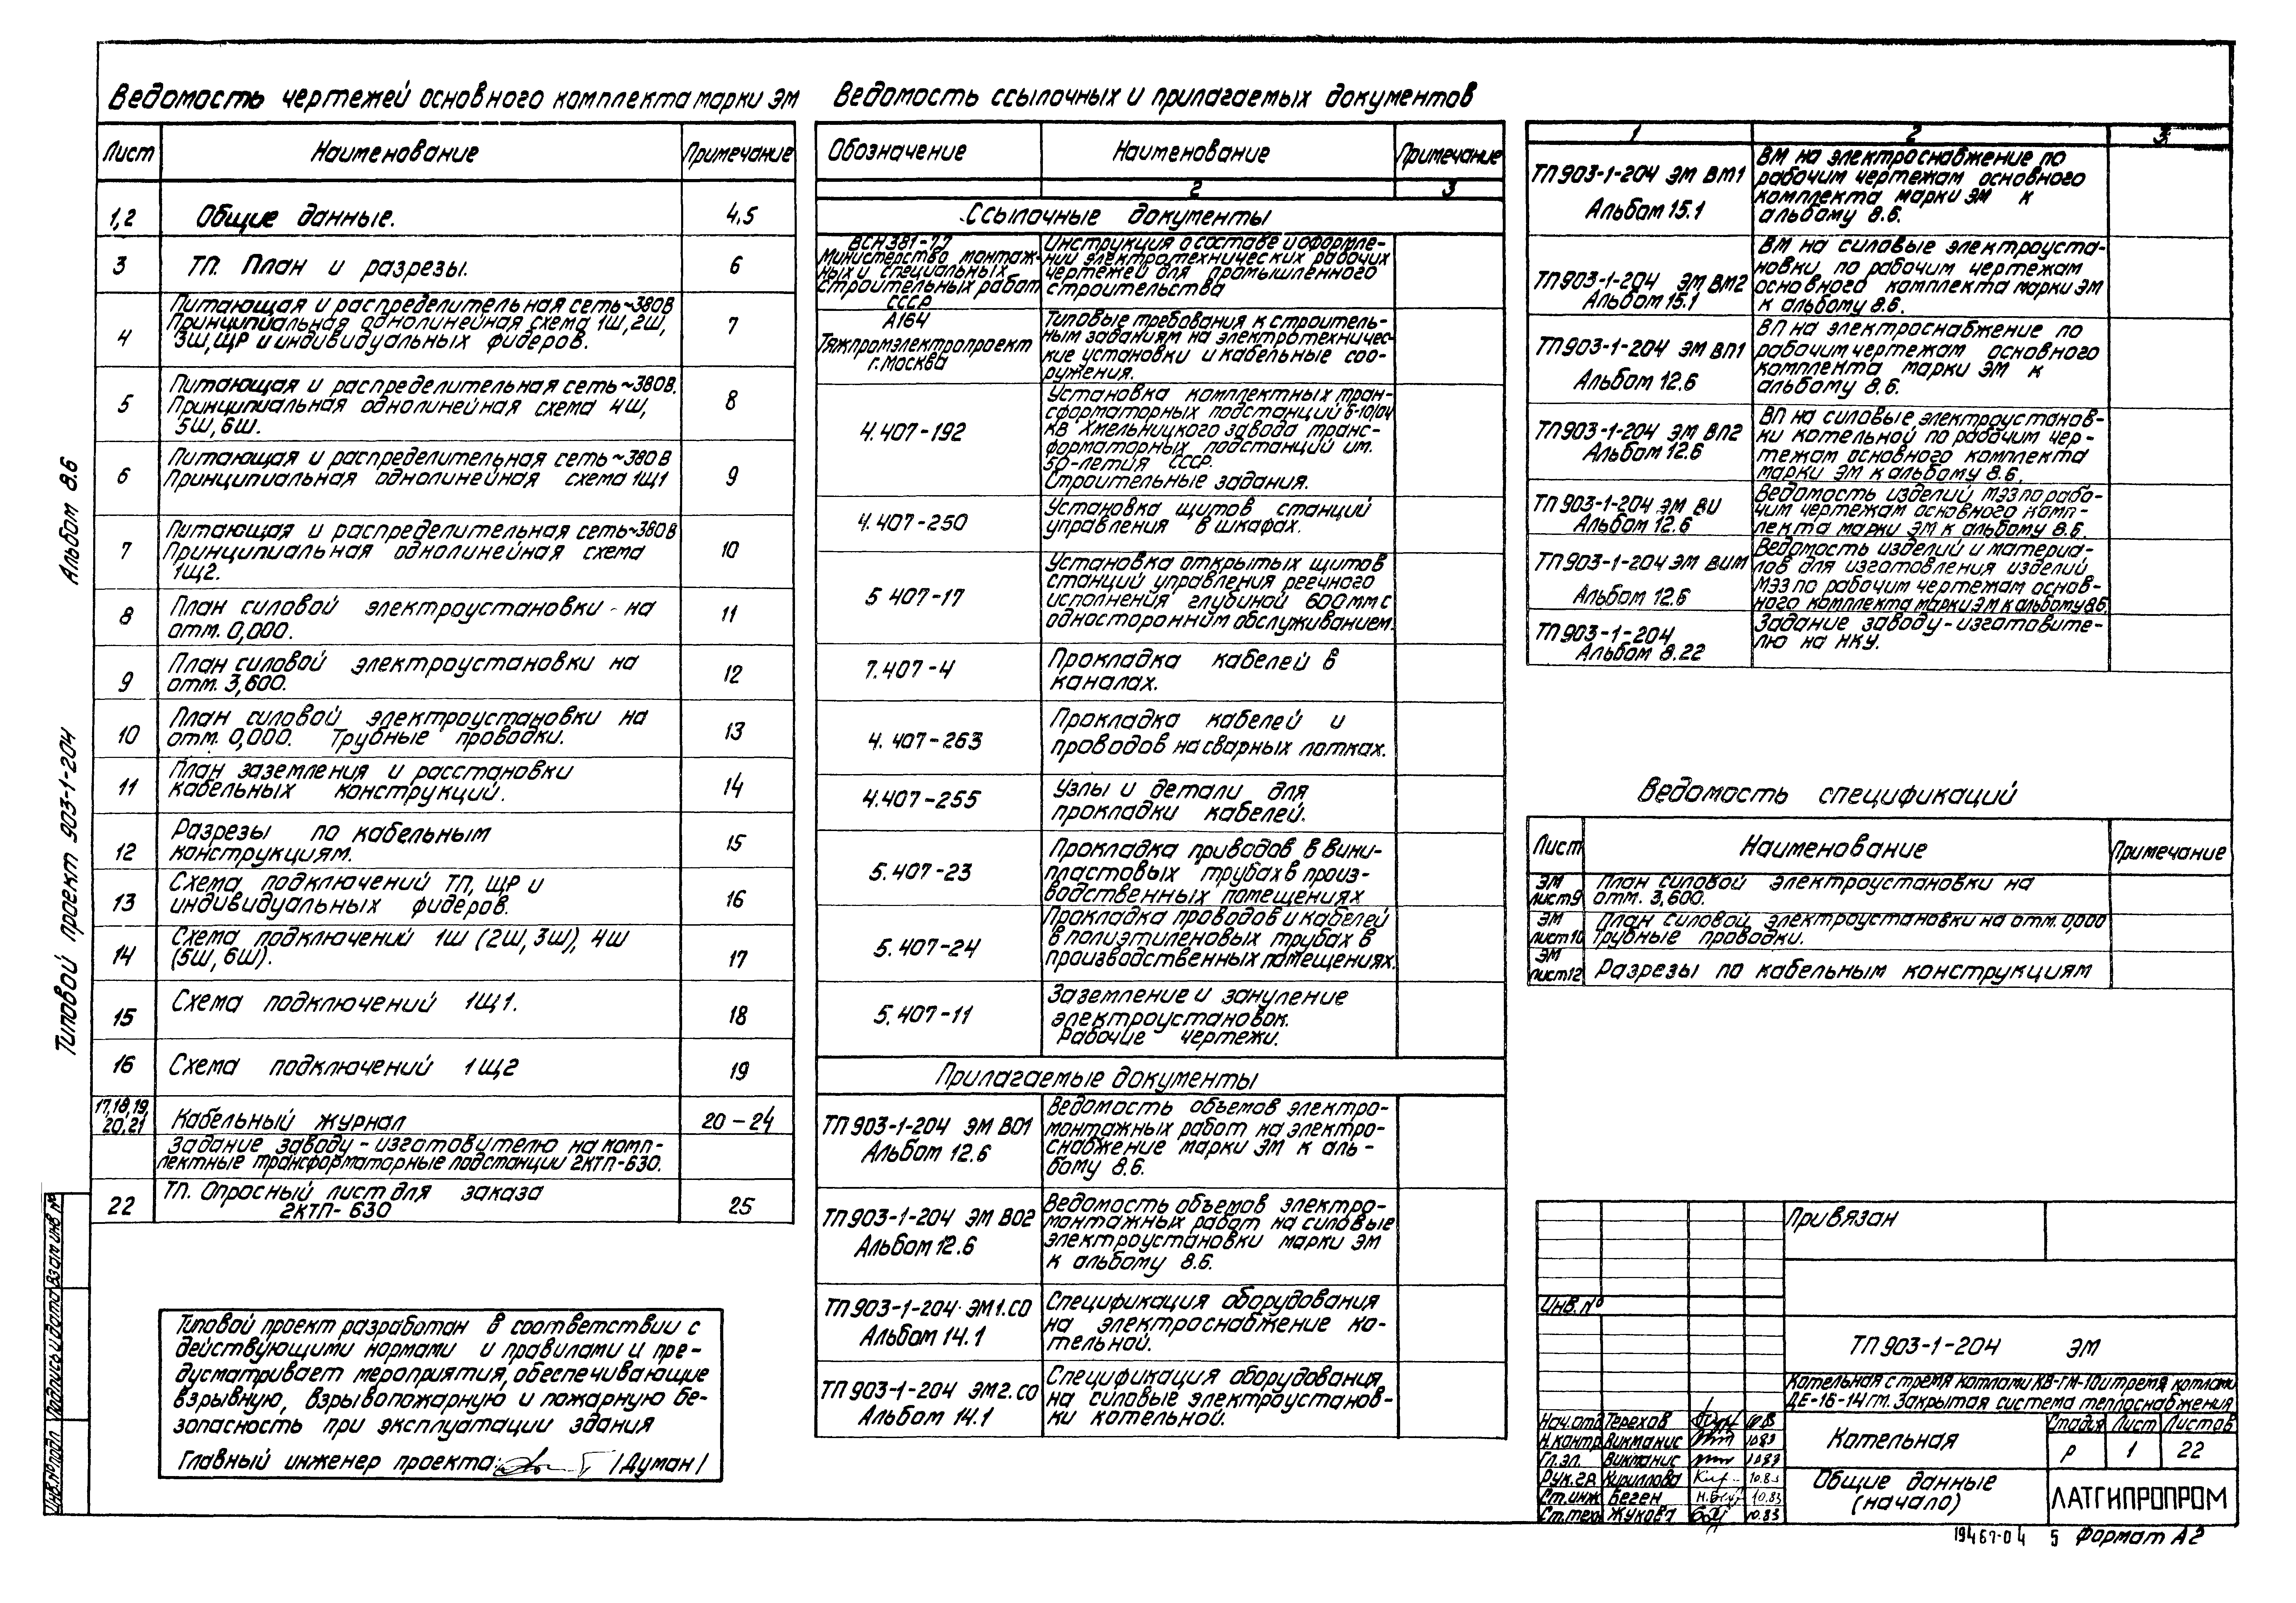 Ведомость чертежей основного комплекта марки ЭМ
Лист Наименование Примечание
1,2 Общие данные. 4,5
3 ТП. План и разрезы. 6
4 Питающая и распределительная сеть ~380В
Принципиальная однолинейная схема 1Ш, 2Ш,
3Ш, ЩР и индивидуальных фидеров. 7
5 Питающая и распределительная сеть ~380В.
Принципиальная однолинейная схема 4Ш,
5Ш, 6Ш. 8
6 Питающая и распределительная сеть ~380В
Принципиальная однолинейная схема 1Щ1 9
7 Питающая и распределительная сеть ~380В
Принципиальная однолинейная схема
1Щ2. 10
8 План силовой электроустановки на
отм. 0,000. 11
9 План силовой электроустановки на
отм. 3,600. 12
10 План силовой электроустановки на
отм. 0,000. Трубные проводки. 13
11 План заземления и расстановки
кабельных конструкций. 14
12 Разрезы по кабельным
конструкциям. 15
13 Схема подключений ТП, ЩР и
индивидуальных фидеров. 16
14 Схема подключений 1Ш (2Ш, 3Ш), 4Ш
(5Ш, 6Ш). 17
15 Схема подключений 1Щ1. 18
16 Схема подключений 1Щ2 19
17,18,19,
20,21 Кабельный журнал 20-24
Задание заводу-изготовителю на комп-
лектные трансформаторные подстанции 2КТП-630.
22 ТП. Опросный лист для заказа
2КТП-630 25
Типовой проект разработан в соответствии с
действующими нормами и правилами и пре-
дусматривает мероприятия, обеспечивающие
взрывную, взрывопожарную и пожарную бе-
зопасность при эксплуатации здания
Главный инженер проекта: /Думан/
Ведомость ссылочных и прилагаемых документов
Обозначение Наименование Примечание
2 3
Ссылочные документы
ВСН381-77
Министерство монтаж-
ных и специальных
строительных работ
СССР
Инструкция о составе и оформле-
нии электротехнических рабочих
чертежей для промышленного
строительства
А164
Тяжпромэлектропроект
г. Москва
Типовые требования к строитель-
ным заданиям на электротехничес-
кие установки и кабельные соо-
ружения.
4.407-192
Установка комплектных тран-
сформаторных подстанций 6-10/04
кв Хмельницкого завода транс-
форматорных подстанций им.
50-летия СССР.
Строительные задания.
4.407-250
Установка щитов станций
управления в шкафах.
5 407-17
Установка открытых щитов
станций управления реечного
исполнения глубиной 600 мм с
односторонним обслуживанием.
7.407-4
Прокладка кабелей в
каналах.
4. 407-263
Прокладка кабелей и
проводов на сварных лотках.
4.407-255
Узлы и детали для
прокладки кабелей.
5.407-23
Прокладка приводов в вини-
пластовых трубах в произ-
водственных помещениях
5.407-24
Прокладка проводов и кабелей
в полиэтиленовых трубах в
производственных помещениях.
5.407-11
Заземление и зануление
электроустановок.
Рабочие чертежи.
Прилагаемые документы
ТП 903-1-204 ЭМ ВО1
Альбом 12.6
Ведомость объемов электро-
монтажных работ на электро-
снабжение марки ЭМ к аль-
бому 8.6.
ТП 903-1-204 ЭМ ВО2
Альбом 12.6
Ведомость объемов электро-
монтажных работ на силовые
электроустановки марки ЭМ
к альбому 8.6.
ТП 903-1-204 ЭМ1.СО
Альбом 14.1
Спецификация оборудования
на электроснабжение ко-
тельной.
ТП 903-1-204 ЭМ2.СО
Альбом 14.1
Спецификация оборудования
на силовые электроустанов-
ки котельной.
1 2 3
ТП 903-1-204 ЭМ ВМ1
Альбом 15.1
ВМ на электроснабжение по
рабочим чертежам основного
комплекта марки ЭМ к
альбому 8.6.
ТП 903-1-204 ЭМ ВМ2
Альбом 15.1
ВМ на силовые электроуста-
новки по рабочим чертежам
основного комплекта марки ЭМ
к альбому 8.6.
ТП 903-1-204 ЭМ ВП1
Альбом 12.6
ВП на электроснабжение по
рабочим чертежам основного
комплекта марки ЭМ к
альбому 8.6.
ТП 903-1-204 ЭМ ВП2
Альбом 12.6
ВП на силовые электроустанов-
ки котельной по рабочим чер-
тежам основного комплекта
марки ЭМ к альбому 8.6.
ТП 903-1-204 ЭМ ВИ
Альбом 12.6
Ведомость изделий МЭЗ по рабо-
чим чертежам основного комп-
лекта марки ЭМ к альбому 8.6.
ТП 903-1-204 ЭМ ВИМ
Альбом 12.6
Ведомость изделий и материа-
лов для изготовления изделий
МЭЗ по рабочим чертежам основ-
ного комплекта марки ЭМ к альбому 8.6.
ТП 903-1-204
Альбом 8.22
Задание заводу-изготовите-
лю на НКУ.
Ведомость спецификаций
Лист Наименование Примечание
ЭМ
лист 9
План силовой электроустановки на
отм. 3,600.
ЭМ
лист 10
План силовой электроустановки на отм. 0,000
Трубные проводки.
ЭМ
лист 12
Разрезы по кабельным конструкциям
Привязан
Инв. №
ТП 903-1-204 ЭМ
Котельная с тремя котлами КВ-ГМ-10 и тремя котлами
ДЕ-16-14гм. Закрытая система теплоснабжения
Нач.отд Терехов
Н.контр Викманис 10.83
Гл.эл. Викманис 10.83
Рук.гр Кириллова 10.83
Ст.инж Беген 10.83
Ст.тех. Жукова 10.83
Котельная
Стадия Лист Листов
Р 1 22
Общие данные
(начало)
ЛАТГИПРОПРОМ
19467-04 5 Формат А2
Альбом 8.6
Типовой проект 903-1-204
Инв.№ подл Подпись и дата Взам инв №